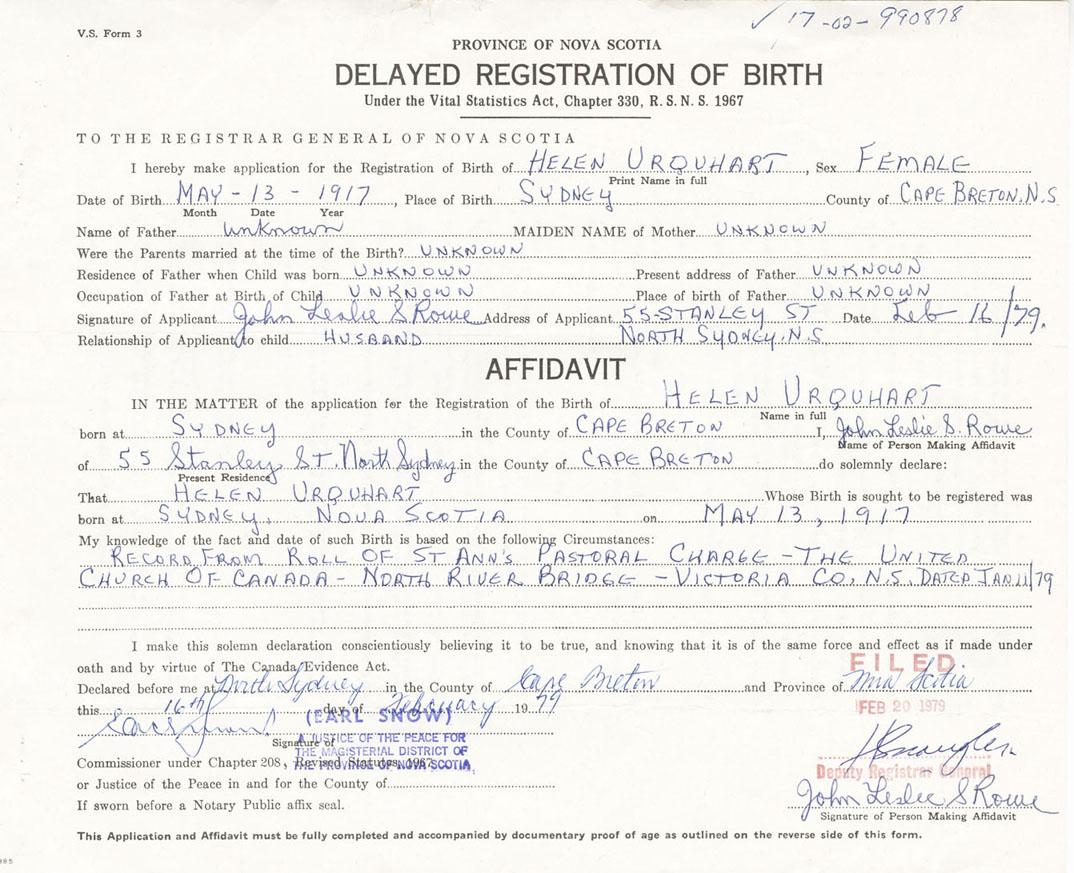 ✓ 17-02-990878
V.S. Form 3
PROVINCE OF NOVA SCOTIA
DELAYED REGISTRATION OF BIRTH
Under the Vital Statistics Act, Chapter 330, R.S.N.S. 1967
TO THE REGISTRAR GENERAL OF NOVA SCOTIA
I hereby make application for the Registration of Birth of HELEN URQUHART, Sex FEMALE
Print Name in full
Date of Birth MAY - 13 - 1917, Place of Birth SYDNEY County of CAPE BRETON, N.S
Month Date Year
Name of Father unknown MAIDEN NAME of Mother UNKNOWN
Were the Parents married at the time of the Birth? UNKNOWN
Residence of Father when Child was born UNKNOWN Present address of Father UNKNOWN
Occupation of Father at Birth of Child UNKNOWN Place of birth of Father UNKNOWN
Signature of Applicant John Leslie S Rowe Address of Applicant 55-STANLEY ST Date Feb 16/79.
Relationship of Applicant to child HUSBAND NORTH SYDNEY, N.S.
AFFIDAVIT
IN THE MATTER of the application for the Registration of the Birth of HELEN URQUHART
Name in full
born at SYDNEY in the County of CAPE BRETON I, John Leslie S. Rowe
Name of Person Making Affidavit
of 55 Stanley ST. North Sydney in the County of CAPE BRETON do solemnly declare:
Present Residence
That HELEN URQUHART Whose Birth is sought to be registered was
born at SYDNEY, NOVA SCOTIA on MAY 13, 1917
My knowledge of the fact and date of such Birth is based on the following Circumstances:
RECORD FROM ROLL OF ST ANN'S PASTORAL CHARGE - THE UNITED
CHURCH OF CANADA - NORTH RIVER BRIDGE - VICTORIA CO, N.S. DATED JAN 11/79
I make this solemn declaration conscientiously believing it to be true, and knowing that it is of the same force and effect as if made under
oath and by virtue of The Canada Evidence Act.
FILED
Declared before me at North Sydney in the County of Cape Breton and Province of Nova Scotia
this 16th day of February 1979
FEB 20 1979
Earl Snow
(EARL SNOW)
Signature of
A JUSTICE OF THE PEACE FOR
THE MAGISTERIAL DISTRICT OF
THE PROVINCE OF NOVA SCOTIA
Commissioner under Chapter 208, Revised Statutes, 1967
Deputy Registrar General
or Justice of the Peace in and for the County of
John Leslie S Rowe
If sworn before a Notary Public affix seal.
Signature of Person Making Affidavit
This Application and Affidavit must be fully completed and accompanied by documentary proof of age as outlined on the reverse side of this form.